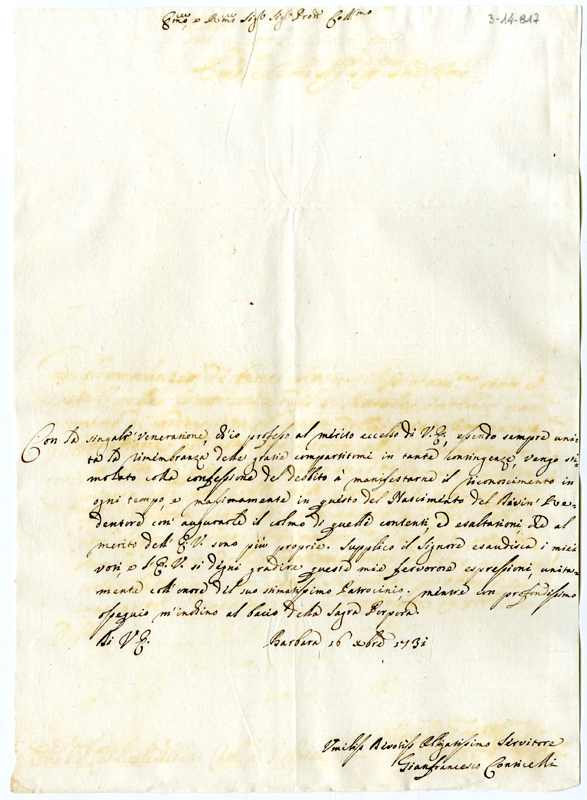 Em̃o, e Rm̃o Sig.r Sig.r Prõn Coll.mo
3-14-817
Con la singolar venerazione, ch'io professo al merito eccelso di V.E., essendo sempre uni-
ta la rimembranza delle grazie compartitemi in tante contingenze, vengo sti-
molato colla confessione del debito à manifestarne il riconoscimento in
ogni tempo, e massimamente in questo del Nascimento del Divin' Re-
dentore con' augurarle il colmo di quelle contenti, ed esaltazioni, che al
merito dell' E.V. sono più proprie. Supplico il Signore esaudisca i miei
voti, e l'E.V. si degni gradire queste mie fervorose espressioni, unita-
mente coll'onore del suo stimatissimo Patrocinio. mentre con profondissimo
ossequio m'inchino al bacio della Sagra Porpora.
Di V.E. Barbara 16 Xbre 1731
Umiliss Devotiss Obligatissimo Servitore
Gianfrancesco